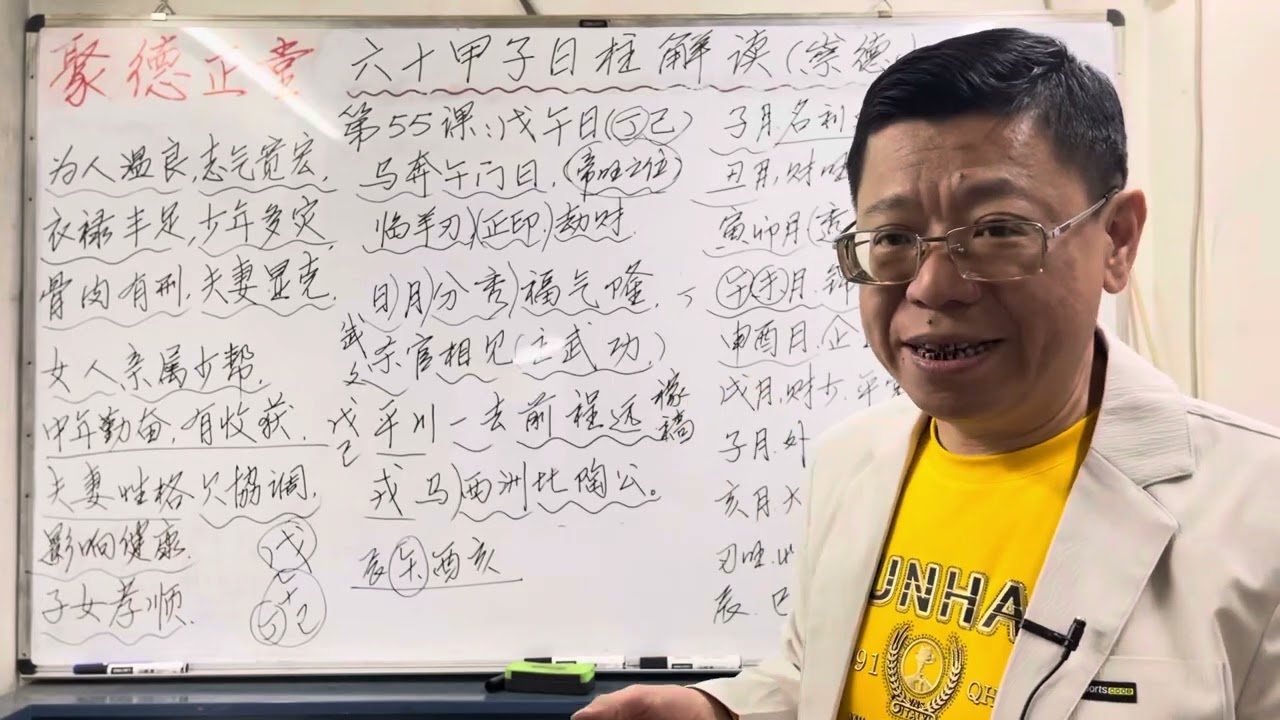 聚德正堂
六十甲子日柱解读(崇德
第55课:戊午日(丁己)
为人温良,志气宽宏,
衣禄丰足,少年多灾
骨肉有刑,夫妻显克,
女人亲属少帮,
中年勤奋,有收获,
夫妻性格欠協调,
影响健康,
子女孝顺,
戊
丁己
马奔午门日,(帝旺之位)
临羊刃(正印)劫财
日月分秀福气隆,
武
杀官相见(主武功)
文
戊己
平川一去前程远
稼穑
戎马西洲比陶公。
辰午酉亥
子月,名利
丑月,财旺
寅卯月(透
午未月,
申酉月,企
戌月,财少,平
子月,外
亥月,大
刃旺,
辰、巳
UNHA
91
QH
ports CODE